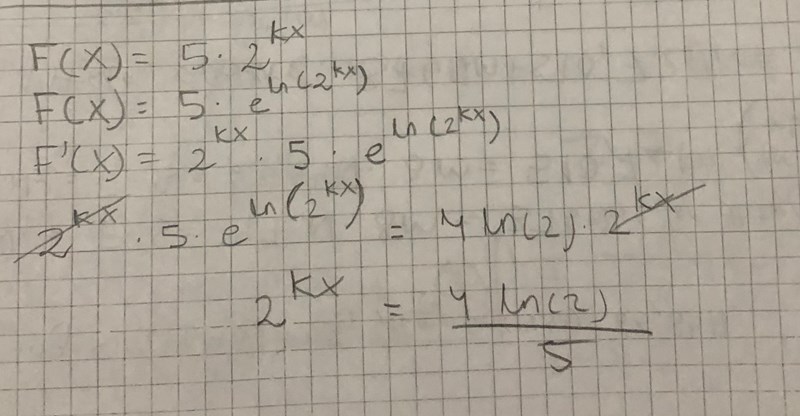 F(x) = 5 · 2^{kx}
F(x) = 5 · e^{ln(2^{kx})}
F'(x) = 2^{kx} · 5 · e^{ln(2^{kx})}
2^{kx} · 5 · e^{ln(2^{kx})} = 4 ln(2) · 2^{kx}
2^{kx} = \frac{4 ln(2)}{5}